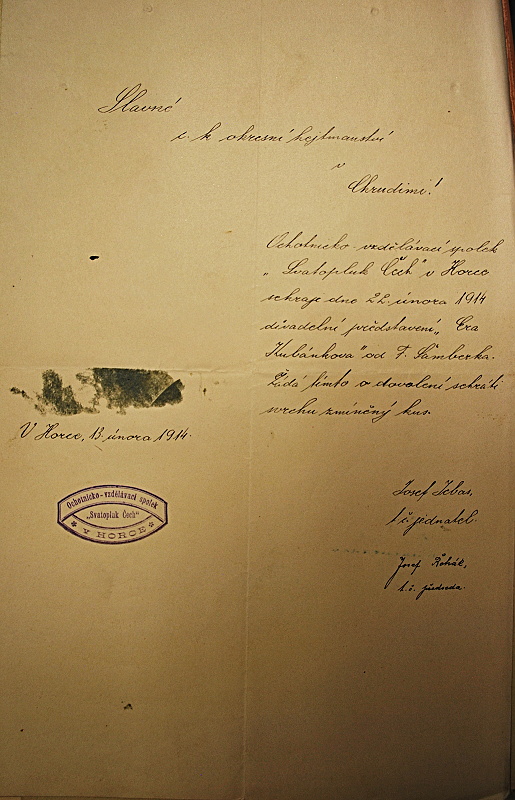 Slavné
c. k. okresní hejtmanství
v
Chrudimi!
Ochotnicko-vzdělávací spolek
„Svatopluk Čech" v Horce
sehraje dne 22. února 1914
divadelní představení „Era
Kubánkova" od F. Šamberka.
Žádá tímto o dovolení sehráti
svrchu zmíněný kus.
V Horce, 13. února 1914.
Ochotnicko-vzdělávací spolek
„Svatopluk Čech"
* V HORCE *
Josef
t. č. jednatel.
Josef Řehák,
t. č. předseda.